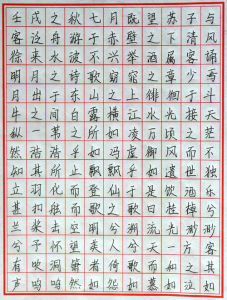 壬戌之秋七月既望苏子与
客泛舟游于赤壁之下清风
徐来水波不兴举酒属客诵
明月之诗歌窈窕之章少焉
月出于东山之上徘徊于斗
牛之间白露横江水光接天
纵一苇之所如凌万顷之茫
然浩浩乎如冯虚御风而不
知其所止飘飘乎如遗世独
立羽化而登仙于是饮酒乐
甚扣舷而歌之歌曰桂棹兮
兰桨击空明兮溯流光渺渺
兮予怀望美人兮天一方客
有吹洞箫者倚歌而和之其
声呜呜然如怨如慕如泣如